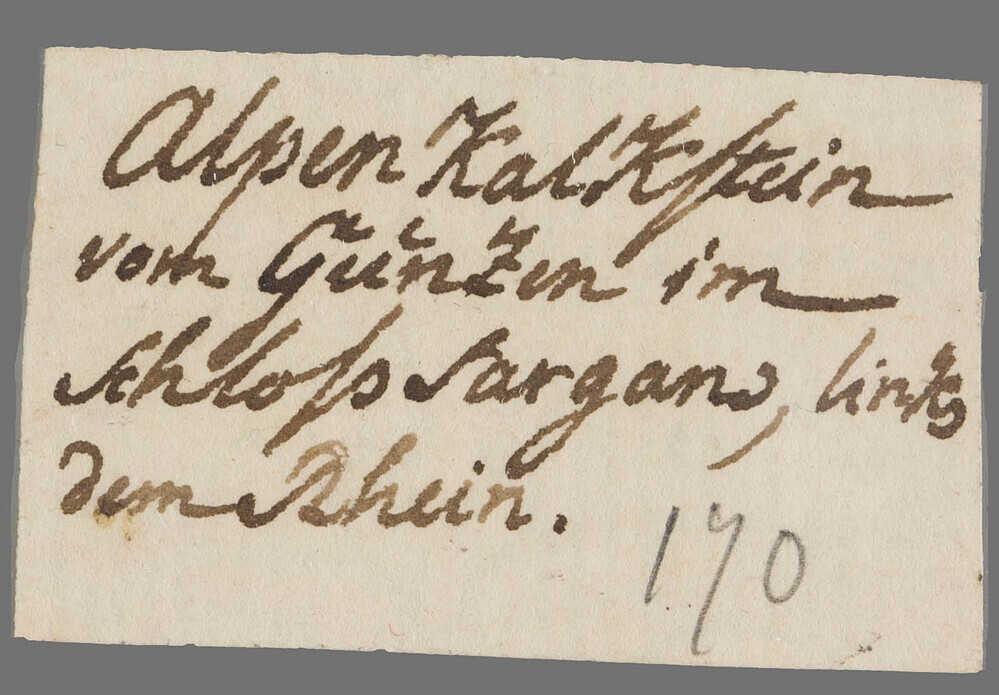 Alpen Kalkstein
vom Günzen im
Schloß Sargans, links
dem Rhein.
170